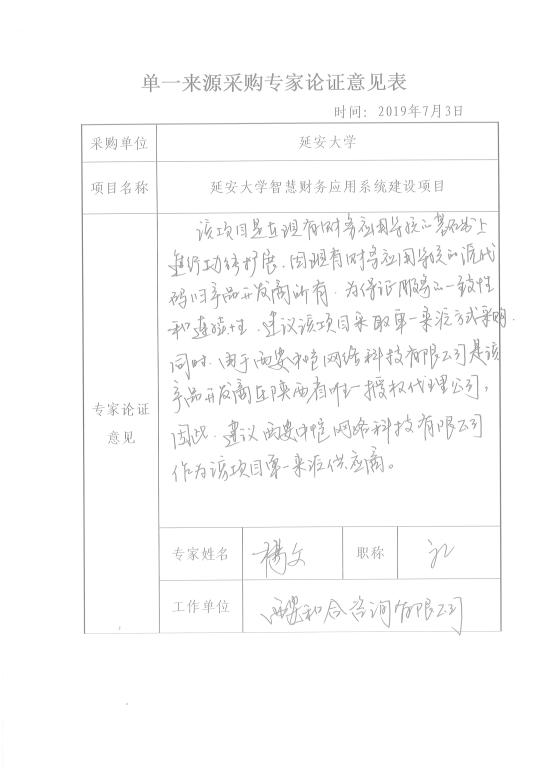 单一来源采购专家论证意见表
时间：2019年7月3日
采购单位 延安大学
项目名称 延安大学智慧财务应用系统建设项目
专家论证意见
该项目是在现有财务应用系统的基础上
进行功能扩展，因现有财务应用系统的源代
码归产品开发商所有，为保证服务的一致性
和连续性，建议该项目采取单一来源方式采购。
同时，由于西安中恺网络科技有限公司是该
产品开发商在陕西省唯一授权代理公司，
因此，建议西安中恺网络科技有限公司
作为该项目单一来源供应商。
专家姓名 杨文 职称
工作单位 西安和合咨询有限公司